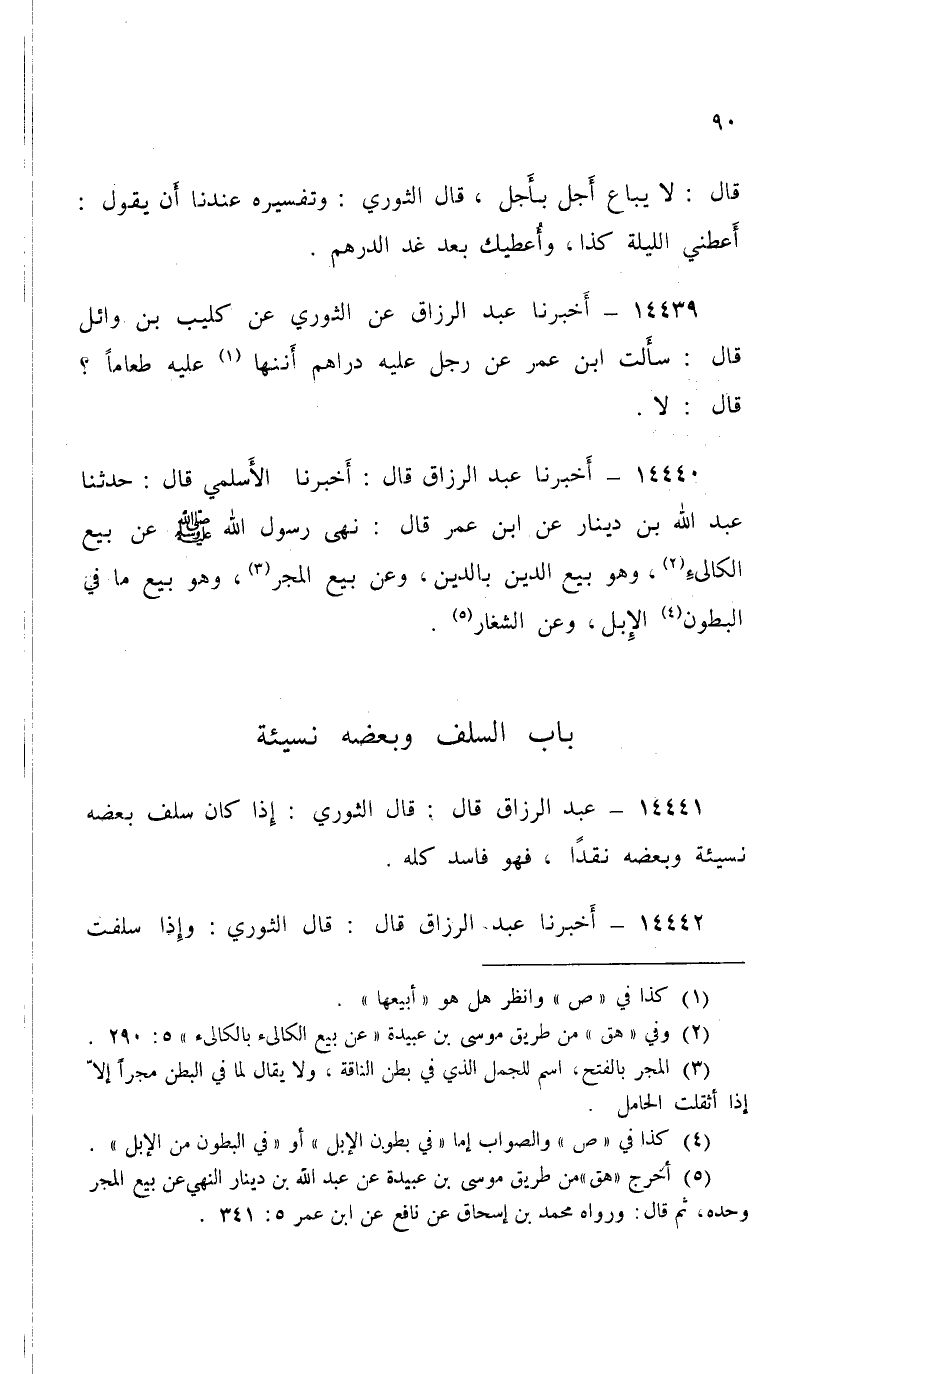 ٩٠
قال : لا يباع أَجل بأَجل ، قال الثوري : وتفسيره عندنا أَن يقول :
أَعطني الليلة كذا ، وأُعطيك بعد غد الدرهم .
١٤٤٣٩ – أَخبرنا عبد الرزاق عن الثوري عن كليب بن وائل
قال : سأَلت ابن عمر عن رجل عليه دراهم أَننها (١) عليه طعاماً ؟
قال : لا .
١٤٤٤٠ – أَخبرنا عبد الرزاق قال : أَخبرنا الأَسلمي قال : حدثنا
عبد الله بن دينار عن ابن عمر قال : نهى رسول الله ﷺ عن بيع
الكالىء(٢) ، وهو بيع الدين بالدين ، وعن بيع المجر(٣) ، وهو بيع ما في
البطون(٤) الإِبل ، وعن الشغار(٥) .
باب السلف وبعضه نسيئة
١٤٤٤١ – عبد الرزاق قال : قال الثوري : إِذا كان سلف بعضه
نسيئة وبعضه نقدًا ، فهو فاسد كله .
١٤٤٤٢ – أَخبرنا عبد الرزاق قال : قال الثوري : وإِذا سلفت
(١) كذا في « ص » وانظر هل هو « أبيعها » .
(٢) وفي « هق » من طريق موسى بن عبيدة « عن بيع الكالىء بالكالىء » ٥ : ٢٩٠ .
(٣) المجر بالفتح ، اسم للجمل الذي في بطن الناقة ، ولا يقال لما في البطن مجراً إلاّ
إذا أثقلت الحامل .
(٤) كذا في « ص » والصواب إما « في بطون الإبل » أو « في البطون من الإبل » .
(٥) أخرج «هق» من طريق موسى بن عبيدة عن عبد الله بن دينار النهي عن بيع المجر
وحده ، ثم قال : ورواه محمد بن إسحاق عن نافع عن ابن عمر ٥ : ٣٤١ .